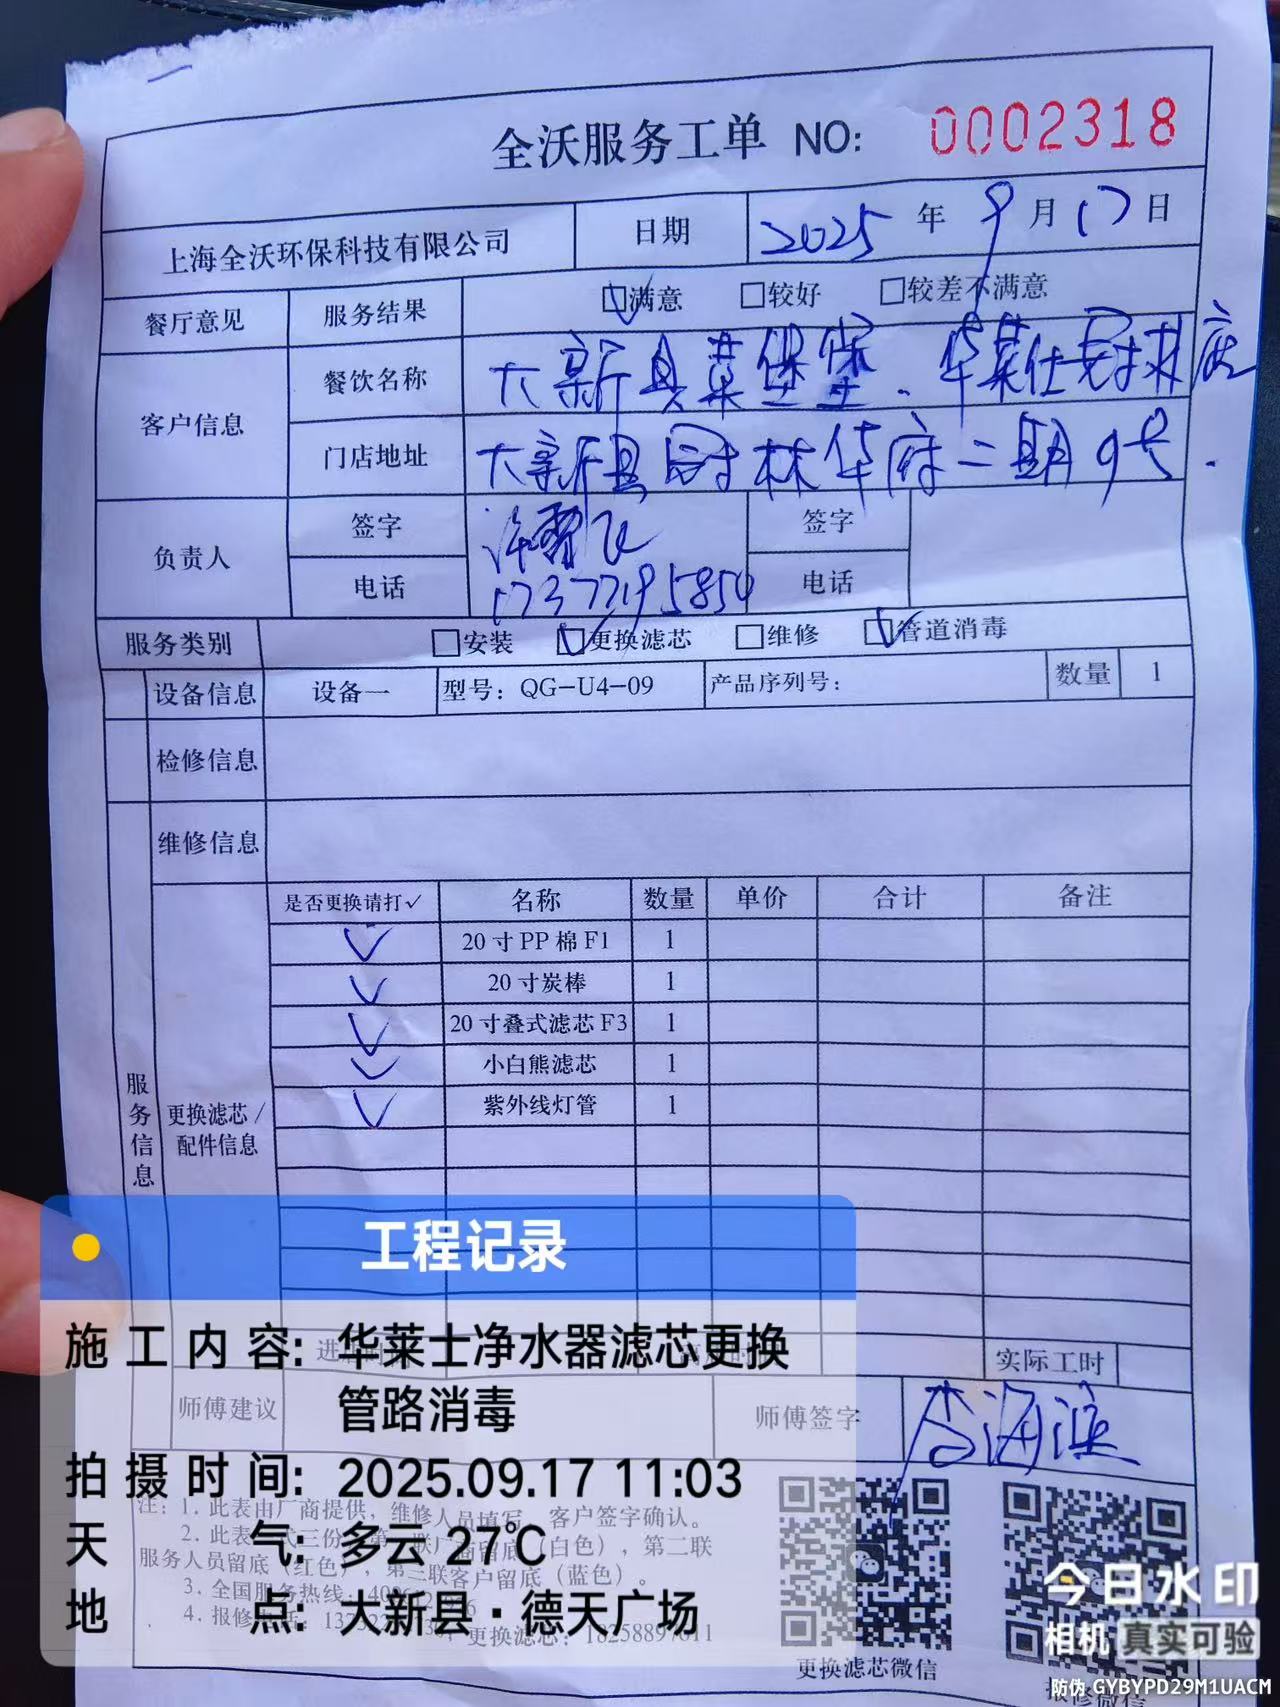 全沃服务工单 NO: 0002318
上海全沃环保科技有限公司 日期 2025 年 9 月 17 日
餐厅意见 服务结果 ☑满意 □较好 □较差不满意
客户信息 餐饮名称 大新县莱堡堡.华莱仕冠林店
门店地址 大新县冠林华府二期9号.
负责人 签字 签字
电话 17377195850 电话
服务类别 □安装 ☑更换滤芯 □维修 ☑管道消毒
设备信息 设备一 型号: QG-U4-09 产品序列号: 数量 1
检修信息
维修信息
服务信息
更换滤芯/
配件信息
是否更换请打✓ 名称 数量 单价 合计 备注
✓ 20寸PP棉F1 1
✓ 20寸炭棒 1
✓ 20寸叠式滤芯F3 1
✓ 小白熊滤芯 1
✓ 紫外线灯管 1
实际工时
师傅建议 师傅签字 李海滨
注: 1. 此表由厂商提供, 维修人员填写, 客户签字确认。
2. 此表 式三份 第 联厂商留底(白色), 第二联
服务人员留底(红色), 第三联客户留底(蓝色)。
3. 全国服务热线:
4. 报修电话: 更换滤芯:
更换滤芯微信
报修微信
工程记录
施工内容: 华莱士净水器滤芯更换
管路消毒
拍摄时间: 2025.09.17 11:03
天气: 多云 27℃
地点: 大新县·德天广场
今日水印
相机 真实可验
防伪 GYBYPD29M1UACM